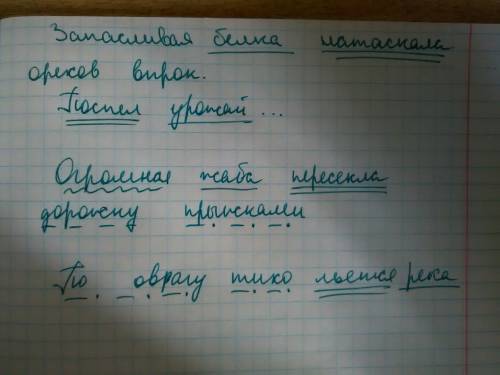 Запасливая белка натаскала
орехов впрок.
Поспел урожай...
Огромная жаба пересекла
дорожку прыжками
По оврагу тихо льется река